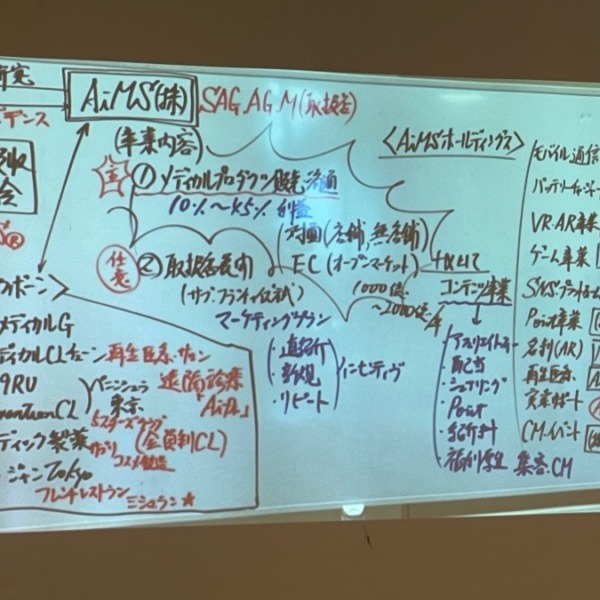 AiMS(株)
SAG.AG.M(取扱店)
デンス
(事業内容)
<AiMSホールディングス>
① メディカルプロダクツ販売.流通
10%〜45% 利益
対面(店舗,無店舗)
任意
② 取扱店
EC (オープンマーケット)
(サブ.フランチャイズ
マーケティングプラン
1000億
〜2000億
コンテンツ事業
・直紹介
・新規
・リピート
インセンティヴ
・アスリート
・シェアリング
・Point
・紹介料
・福利厚生
集客.CM
モバイル通信
バッテリーチャー
VR.AR事業
ゲーム事業
SNS.プラット
Point事業
名刺(AR)
再生医療
実業サポート
CM.イベント
ボーン>
メディカルG
ディカルCLチェーン
再生医療.サロン
9RU
ペニンシュラ
東京
遠隔診療
CL)
5スターズクラブ
(会員制CL)
ディック製薬
サプリ
コスメ製造
ジャン Tokyo
フレンチレストラン
ミシュラン★